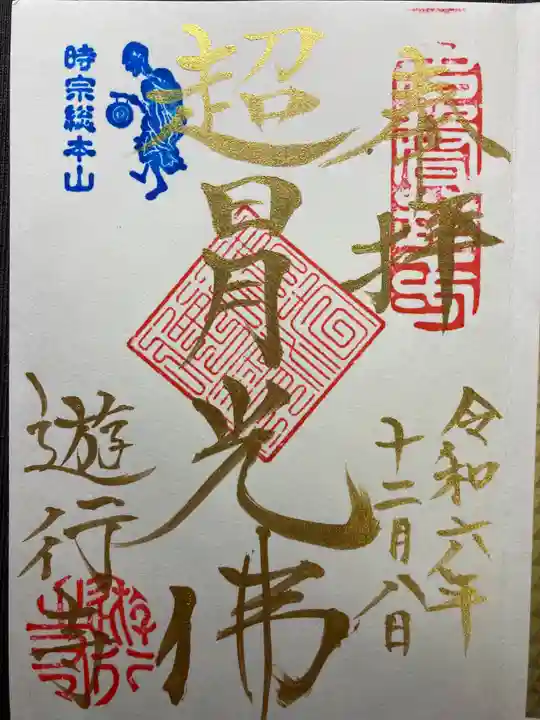 奉拝
令和六年
十二月八日
超日月光佛
時宗総本山
遊行寺